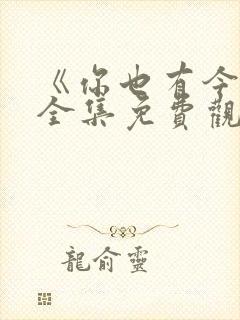 《你也有今
全集免費觀
龍俞靈